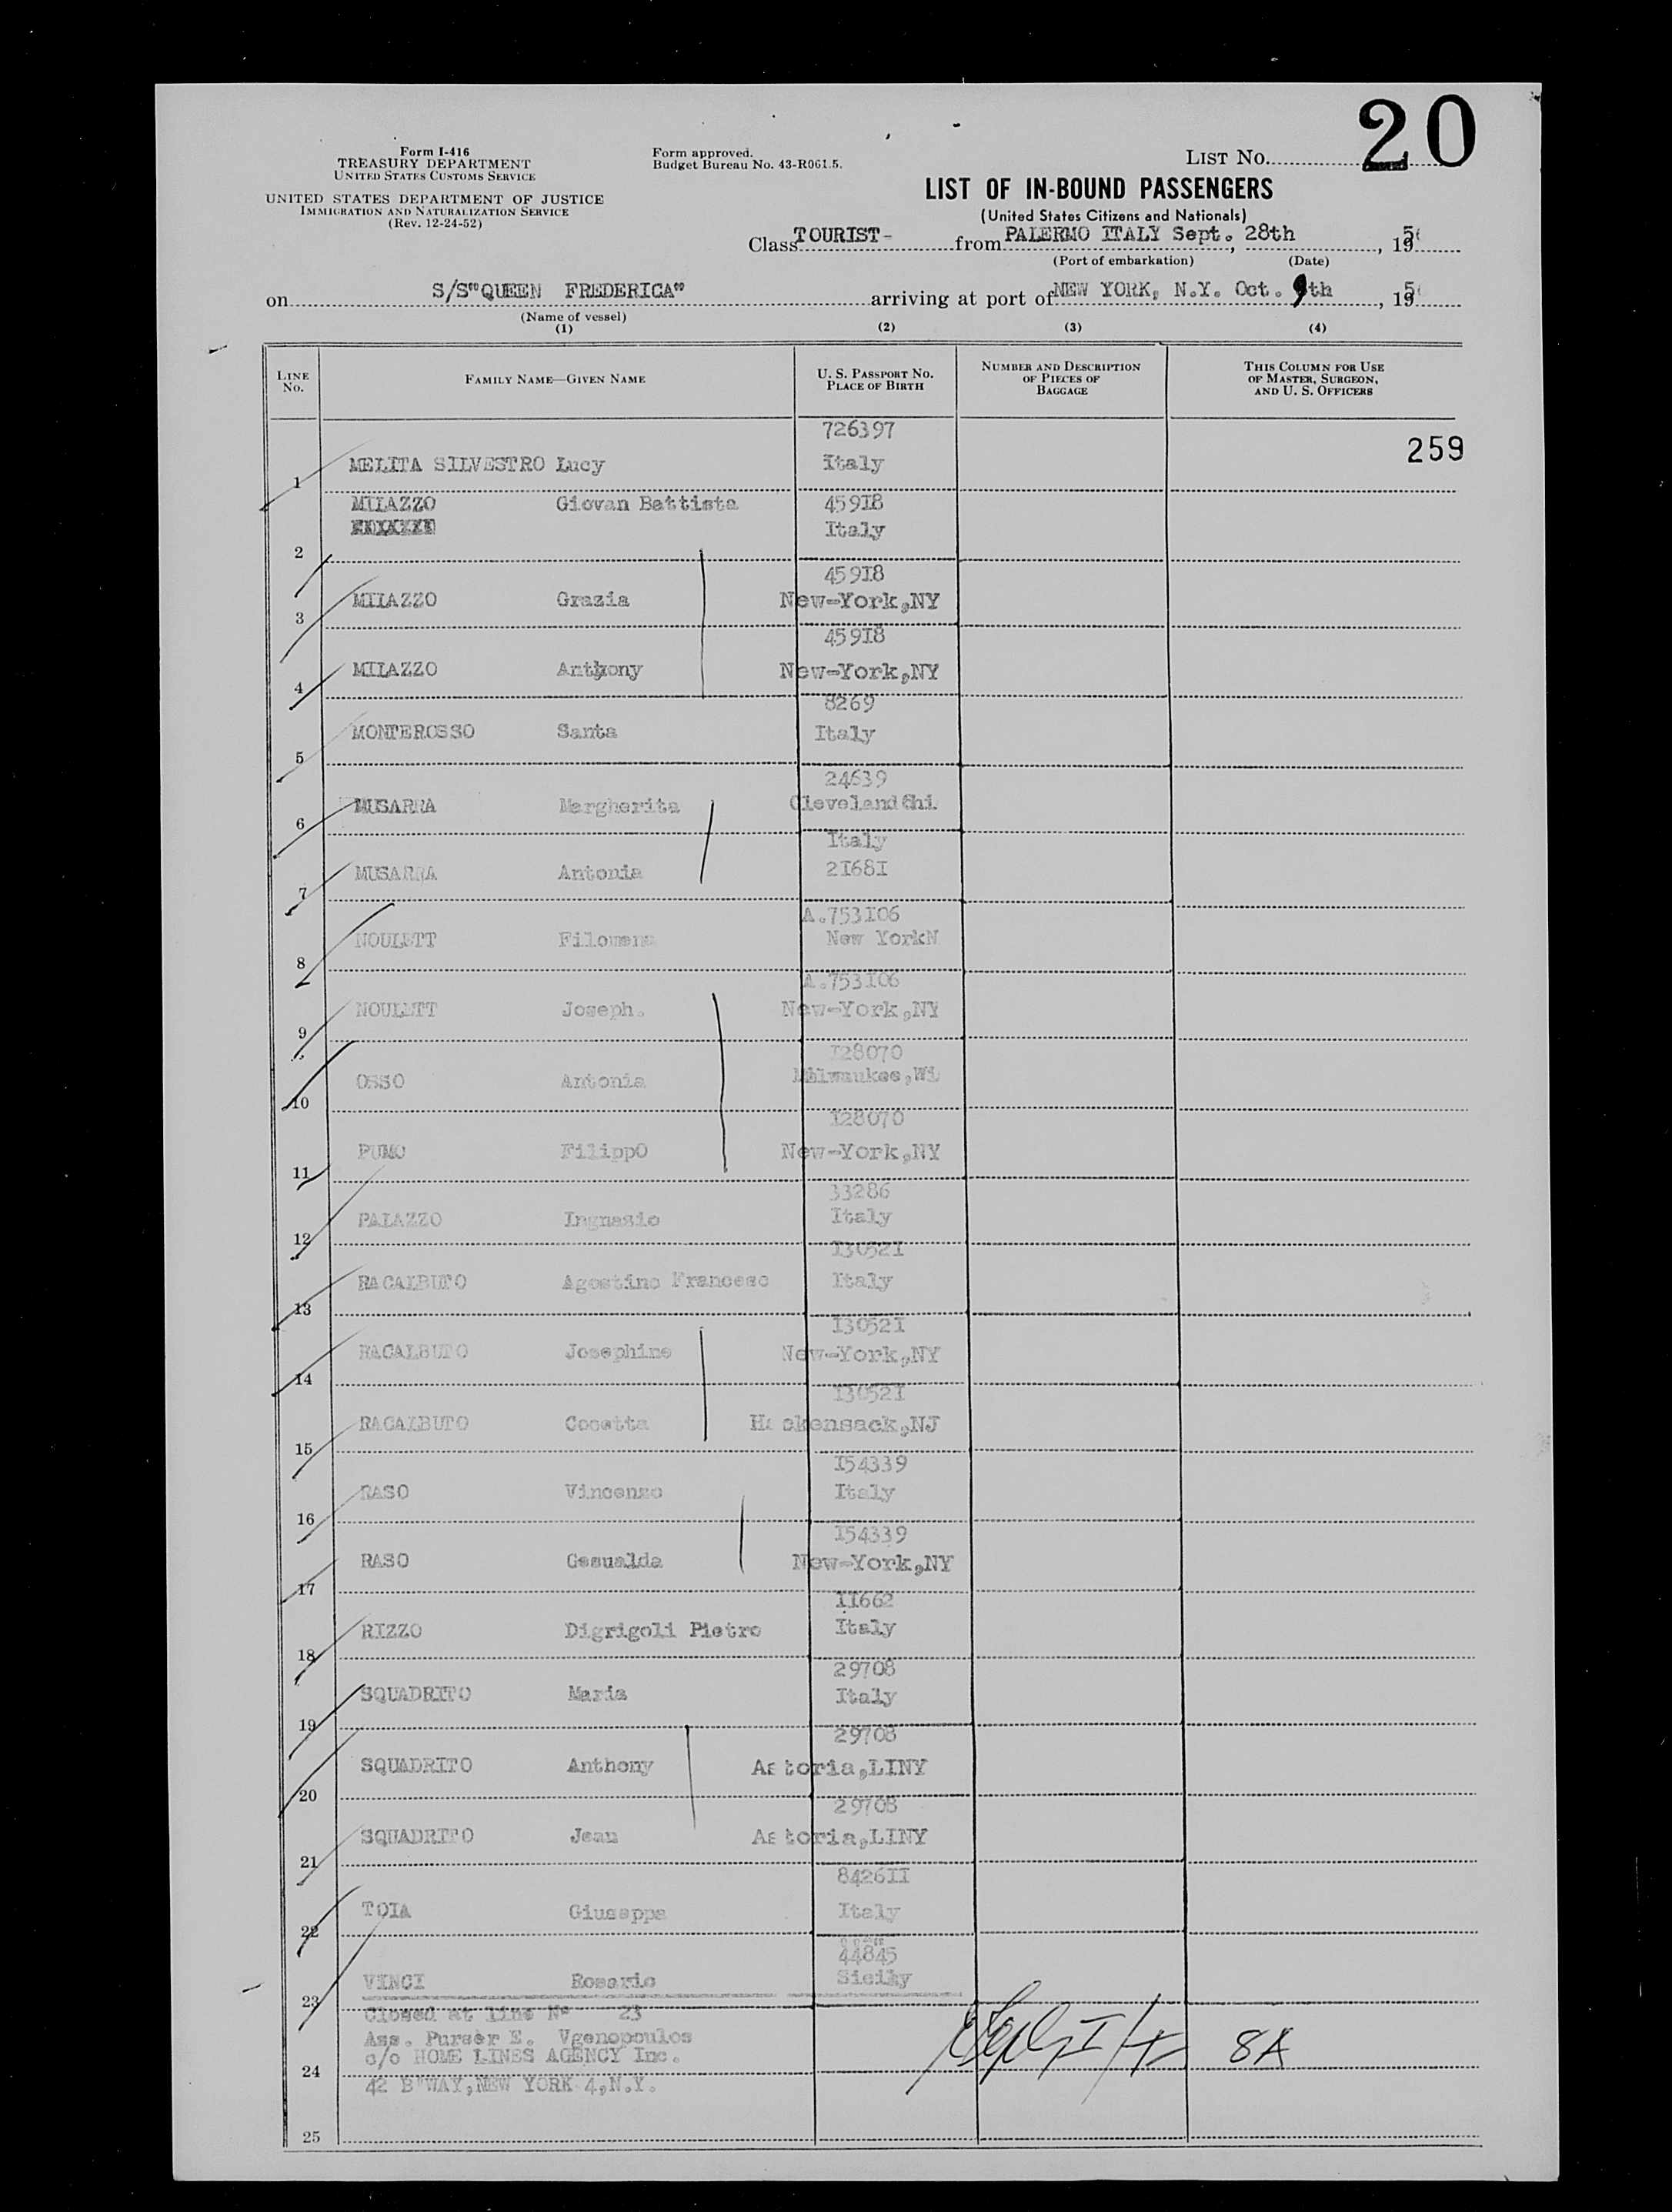 20
Form I-416
TREASURY DEPARTMENT
UNITED STATES CUSTOMS SERVICE
UNITED STATES DEPARTMENT OF JUSTICE
IMMIGRATION AND NATURALIZATION SERVICE
(Rev. 12-24-52)
Form approved.
Budget Bureau No. 43-R061.5.
LIST No.
LIST OF IN-BOUND PASSENGERS
(United States Citizens and Nationals)
Class TOURIST- from PALERMO ITALY Sept. 28th, 195
(Port of embarkation) (Date)
on S/S"QUEEN FREDERICA" arriving at port of NEW YORK, N.Y. Oct. 9th, 195
(Name of vessel)
(1) (2) (3) (4)
LINE No. FAMILY NAME—GIVEN NAME U. S. PASSPORT No. PLACE OF BIRTH NUMBER AND DESCRIPTION OF PIECES OF BAGGAGE THIS COLUMN FOR USE OF MASTER, SURGEON, AND U. S. OFFICERS
726397
259
1 MELITA SILVESTRO Lucy Italy
MILAZZO Giovan Battista 45918
Italy
2
45918
3 MILAZZO Grazia New-York,NY
45918
4 MILAZZO Anthony New-York,NY
8269
5 MONTEROSSO Santa Italy
24639
6 MUSARRA Margherita Cleveland Ohi.
Italy
7 MUSARRA Antonia 21681
A.753106
8 NOULETT Filomena New YorkN
A.753106
9 NOULETT Joseph. New-York,NY
128070
10 OSSO Antonia Milwaukee,Wi
128070
11 PUMO FilippO New-York,NY
33286
12 PALAZZO Ingnasio Italy
130521
13 RACALBUTO Agostino Francesc Italy
130521
14 RACALBUTO Josephine New-York,NY
130521
15 RACALBUTO Cosetta Hackensack,NJ
154339
16 RASO Vincenzo Italy
154339
17 RASO Gesualda New-York,NY
11662
18 RIZZO Digrigoli Pietro Italy
29708
19 SQUADRITO Maria Italy
29708
20 SQUADRITO Anthony Astoria,LINY
29708
21 SQUADRITO Jean Astoria,LINY
842611
22 TOIA Giuseppe Italy
44845
23 VINCI Rosario Sicily
Closed at line N° 23
Ass. Purser E. Vgenopoulos
24 c/o HOME LINES AGENCY Inc. 8A
42 B'WAY,NEW YORK 4,N.Y.
25